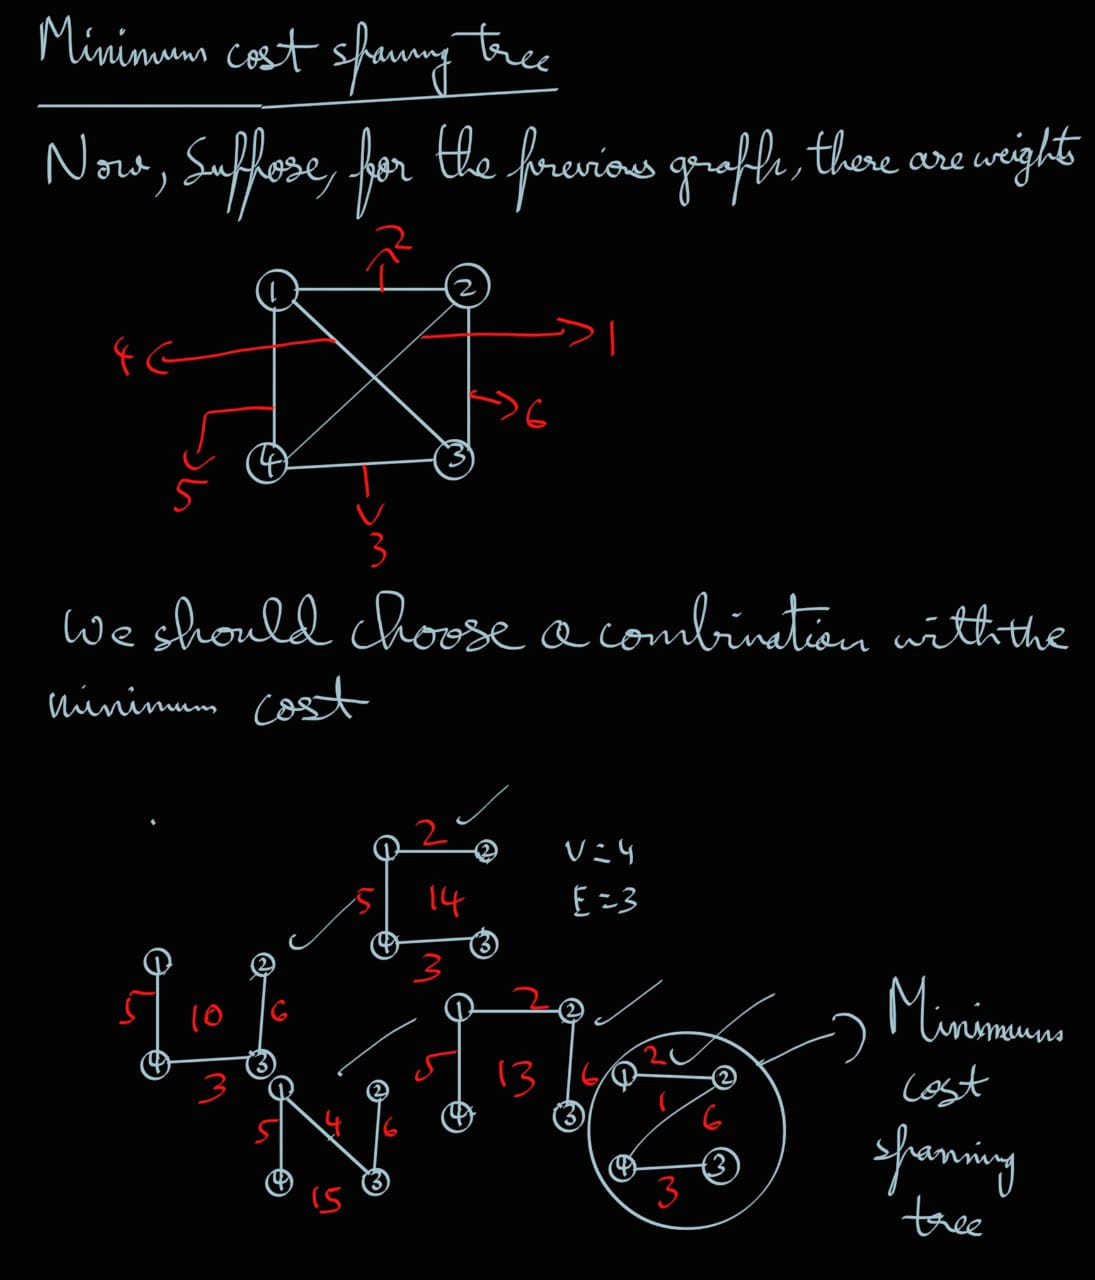 Minimum cost spanning tree
Now, Suppose, for the previous graph, there are weights
2
1 2
4 1
6
4 3
5
3
We should choose a combination with the
minimum cost
2
1 2 V=4
5 14 E=3
4 3
3
1 2
5 10 6
4 3
3
1 2
5 4 6
4 3
15
2
1 2
5 13 6
4 3
2
1 2
1 6
4 3
3
Minimum
cost
spanning
tree